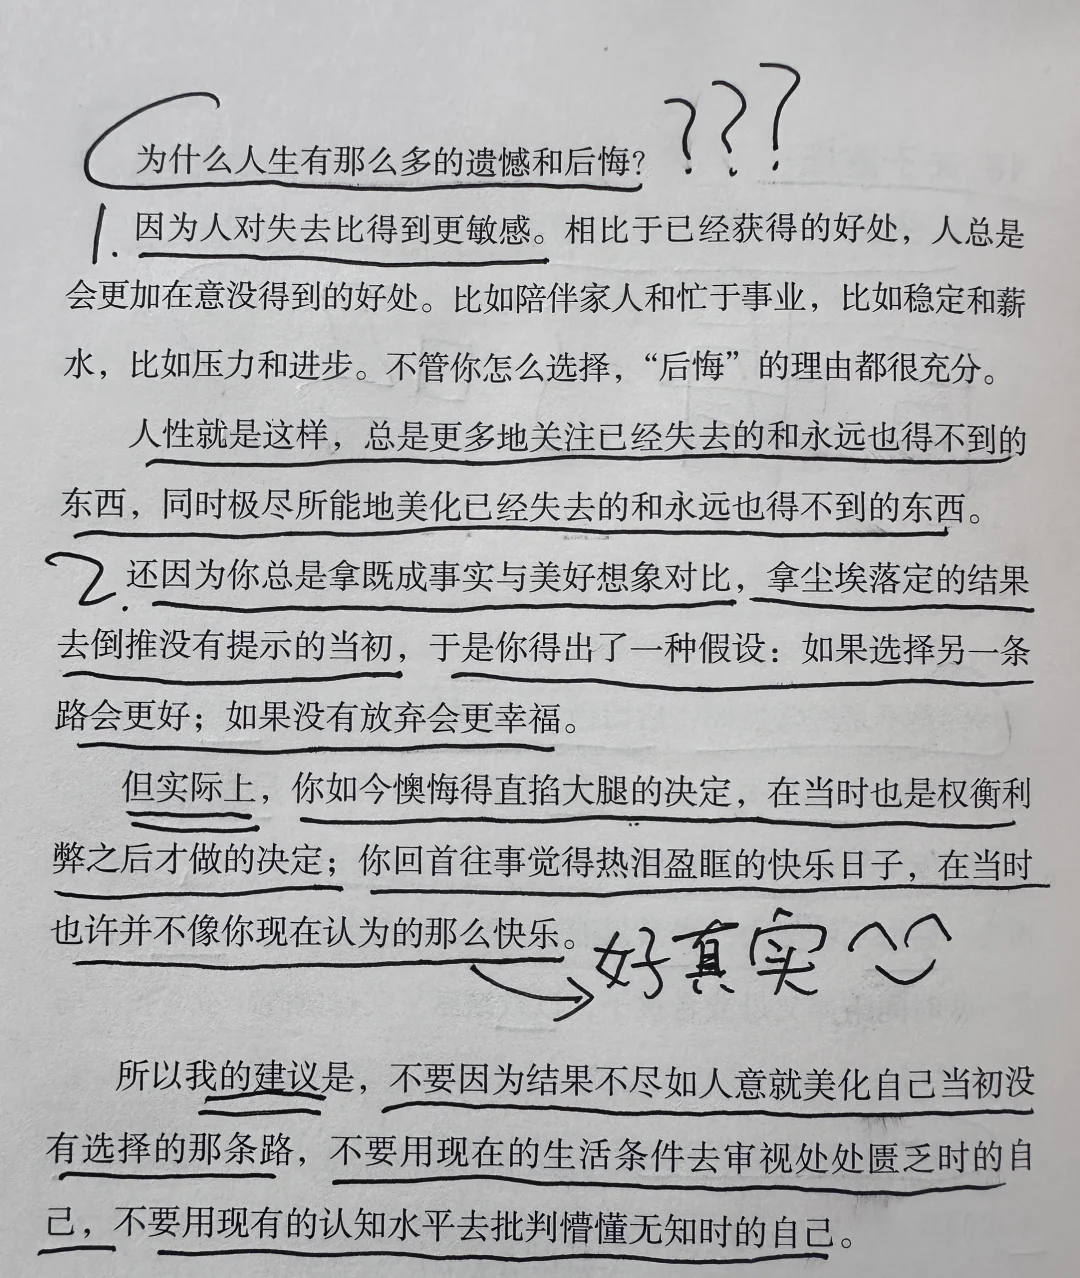 为什么人生有那么多的遗憾和后悔？???
1.因为人对失去比得到更敏感。相比于已经获得的好处，人总是
会更加在意没得到的好处。比如陪伴家人和忙于事业，比如稳定和薪
水，比如压力和进步。不管你怎么选择，“后悔”的理由都很充分。
人性就是这样，总是更多地关注已经失去的和永远也得不到的
东西，同时极尽所能地美化已经失去的和永远也得不到的东西。
2.还因为你总是拿既成事实与美好想象对比，拿尘埃落定的结果
去倒推没有提示的当初，于是你得出了一种假设：如果选择另一条
路会更好；如果没有放弃会更幸福。
但实际上，你如今懊悔得直掐大腿的决定，在当时也是权衡利
弊之后才做的决定；你回首往事觉得热泪盈眶的快乐日子，在当时
也许并不像你现在认为的那么快乐。
好真实
所以我的建议是，不要因为结果不尽如人意就美化自己当初没
有选择的那条路，不要用现在的生活条件去审视处处匮乏时的自
己，不要用现有的认知水平去批判懵懂无知时的自己。